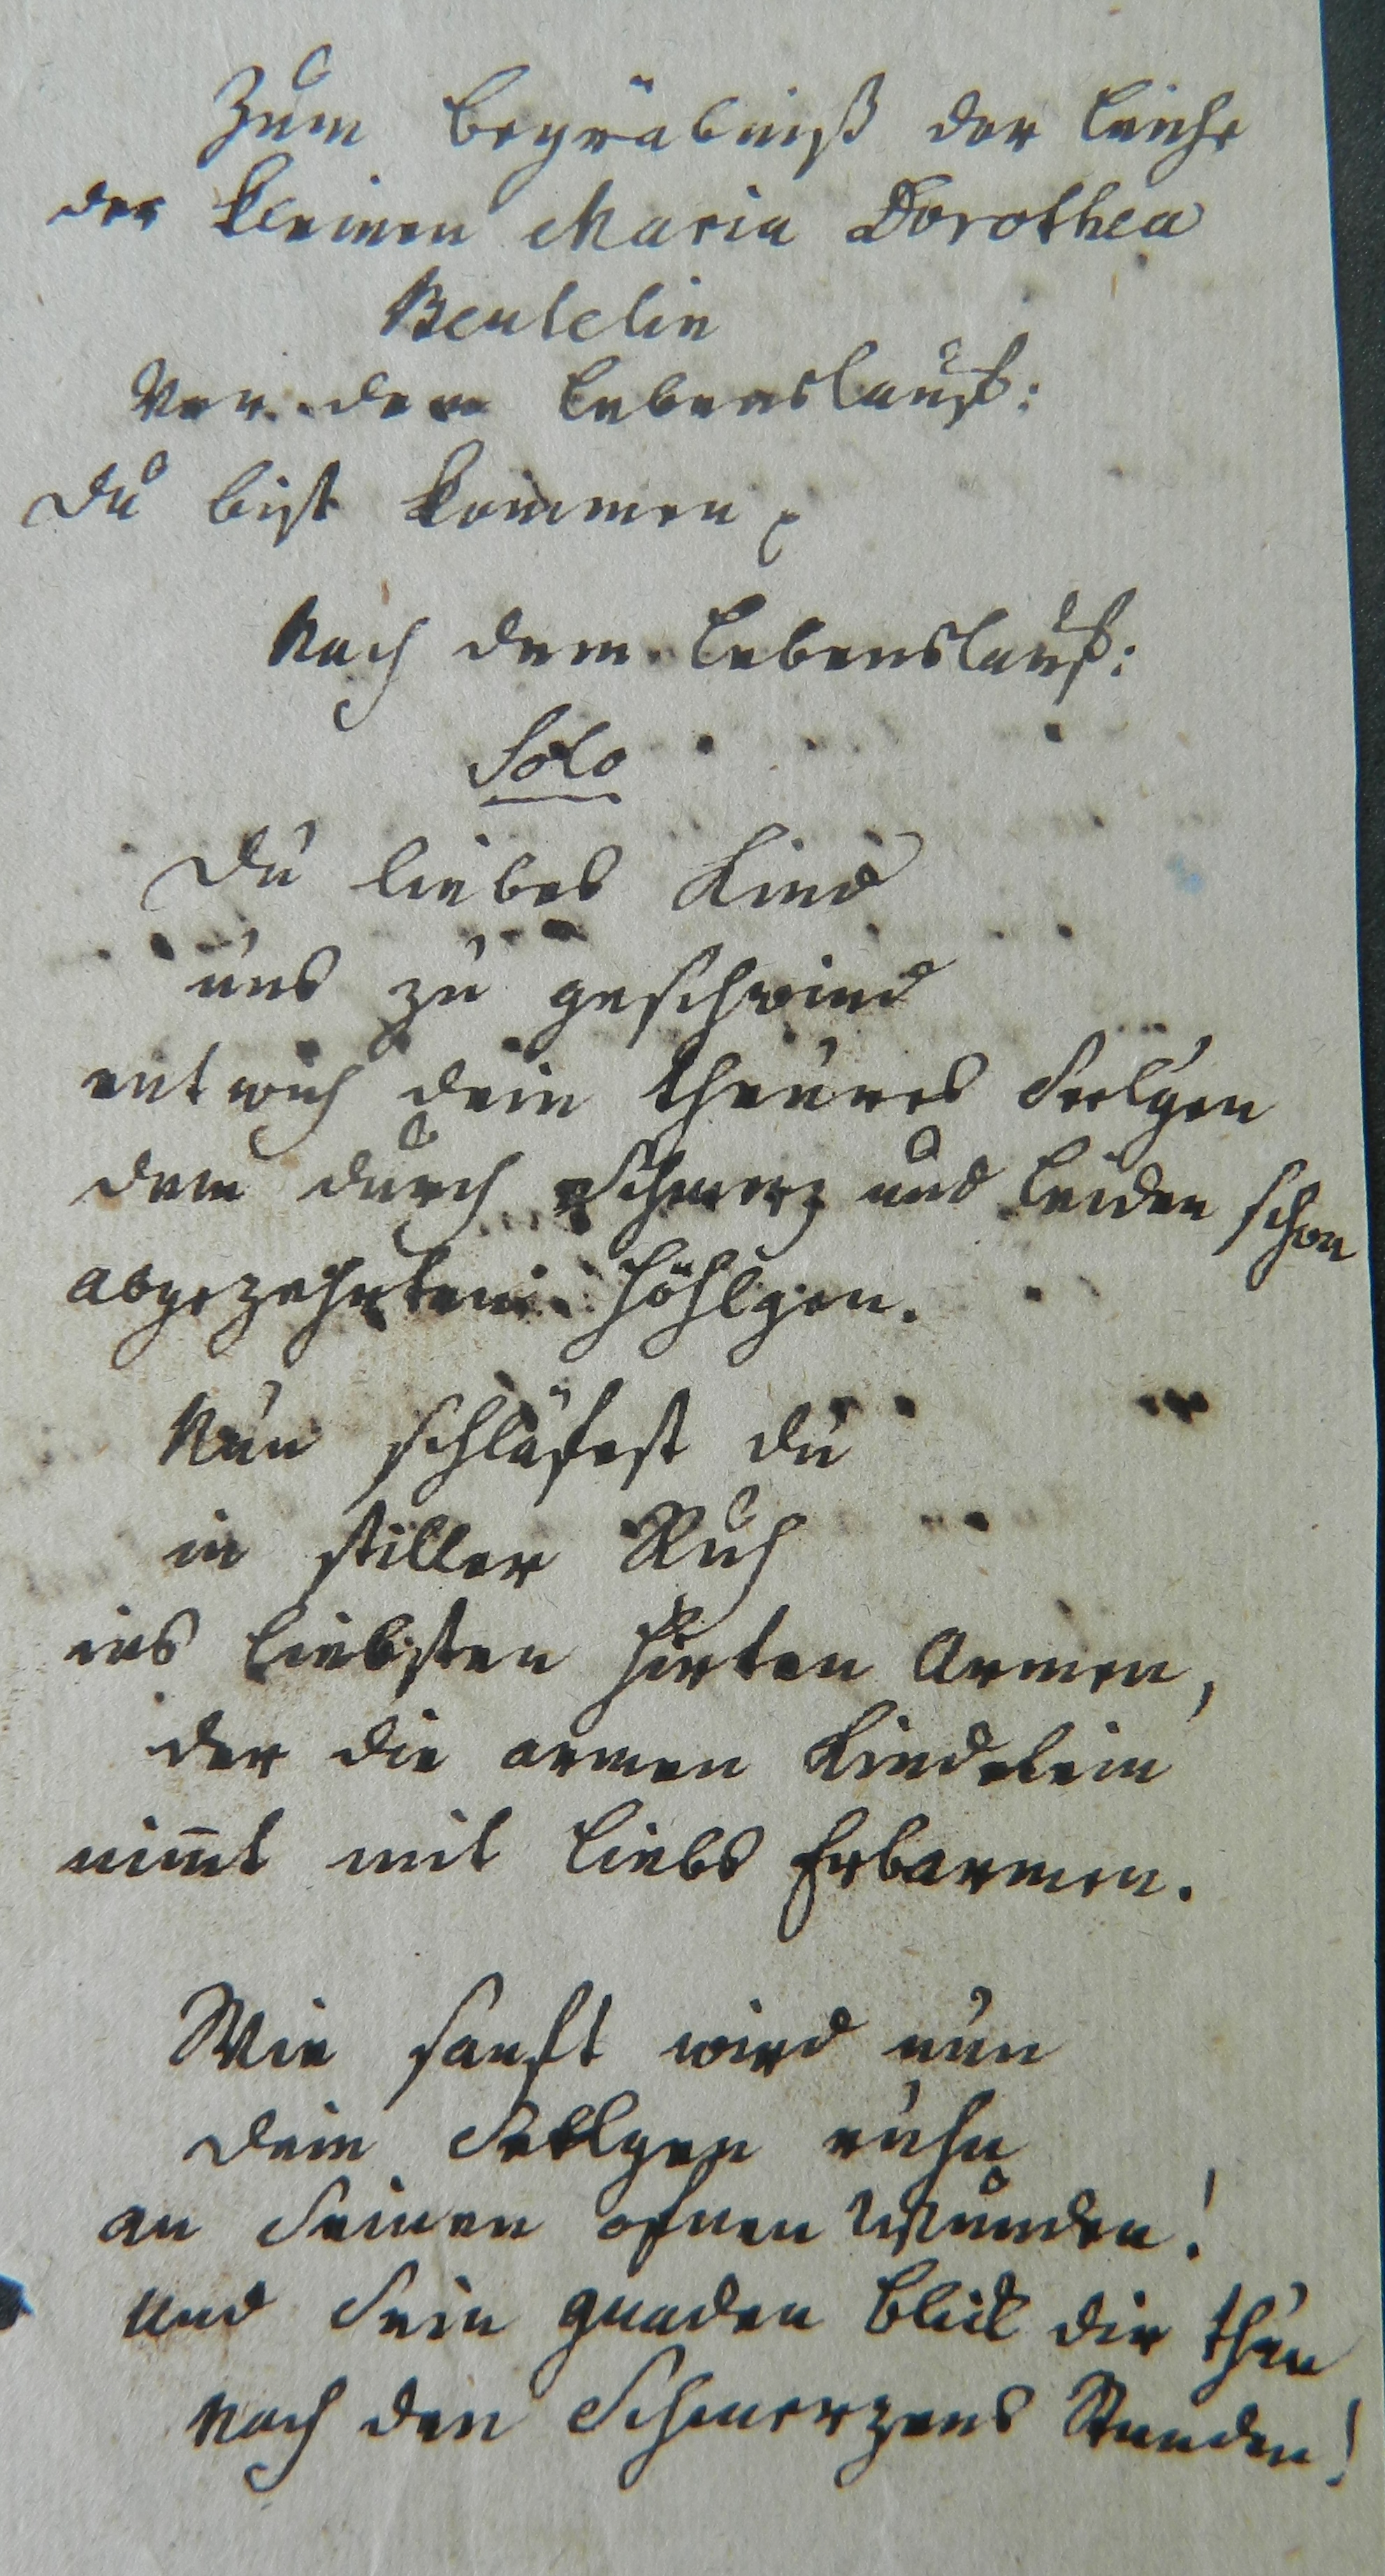 Zum Begräbniß der Leiche
der kleinen Maria Dorothea
Beutelin
Vor dem Lebenslauf:
Du bist kommen
Nach dem Lebenslauf:
Solo
Du liebes Kind
uns zu geschwind
entwich dein theures Seelgen
dem durch Schmerz und Leiden schon
abgezehrtem Höhlgen.
Nun schläfest du
in stiller Ruh
ins liebsten Hirten Armen,
der die armen Kindelein
nim̅t mit Liebs Erbarmen.
Wie sanft wird nun
dein Seelgen ruhn
an Seinen ofnen Wunden!
Und Sein gnaden Blick dir thun
Nach den Schmerzens Stunden!